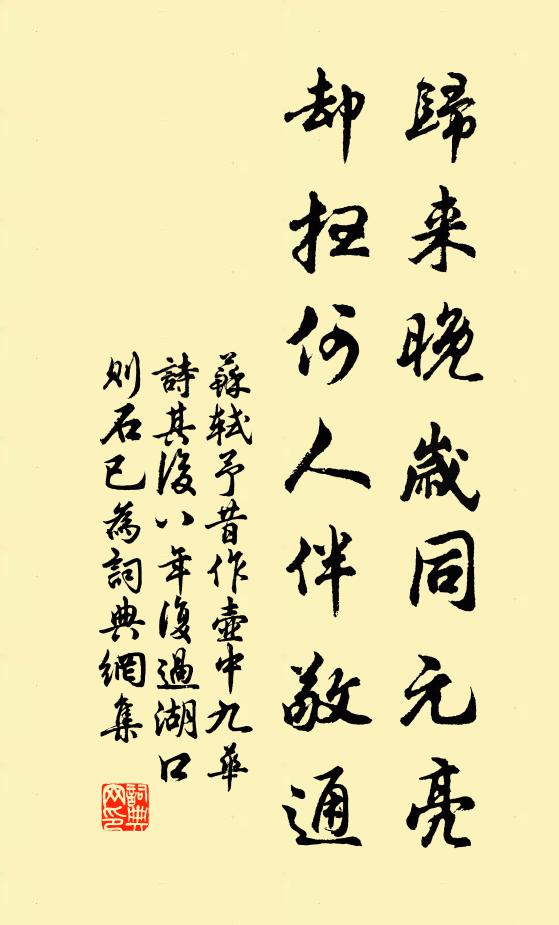 歸来晚歲同元亮
却掃何人伴敬通
蘇軾予昔作壺中九華
詩其後八年復過湖口
则石已為詞典網集
詞典網印